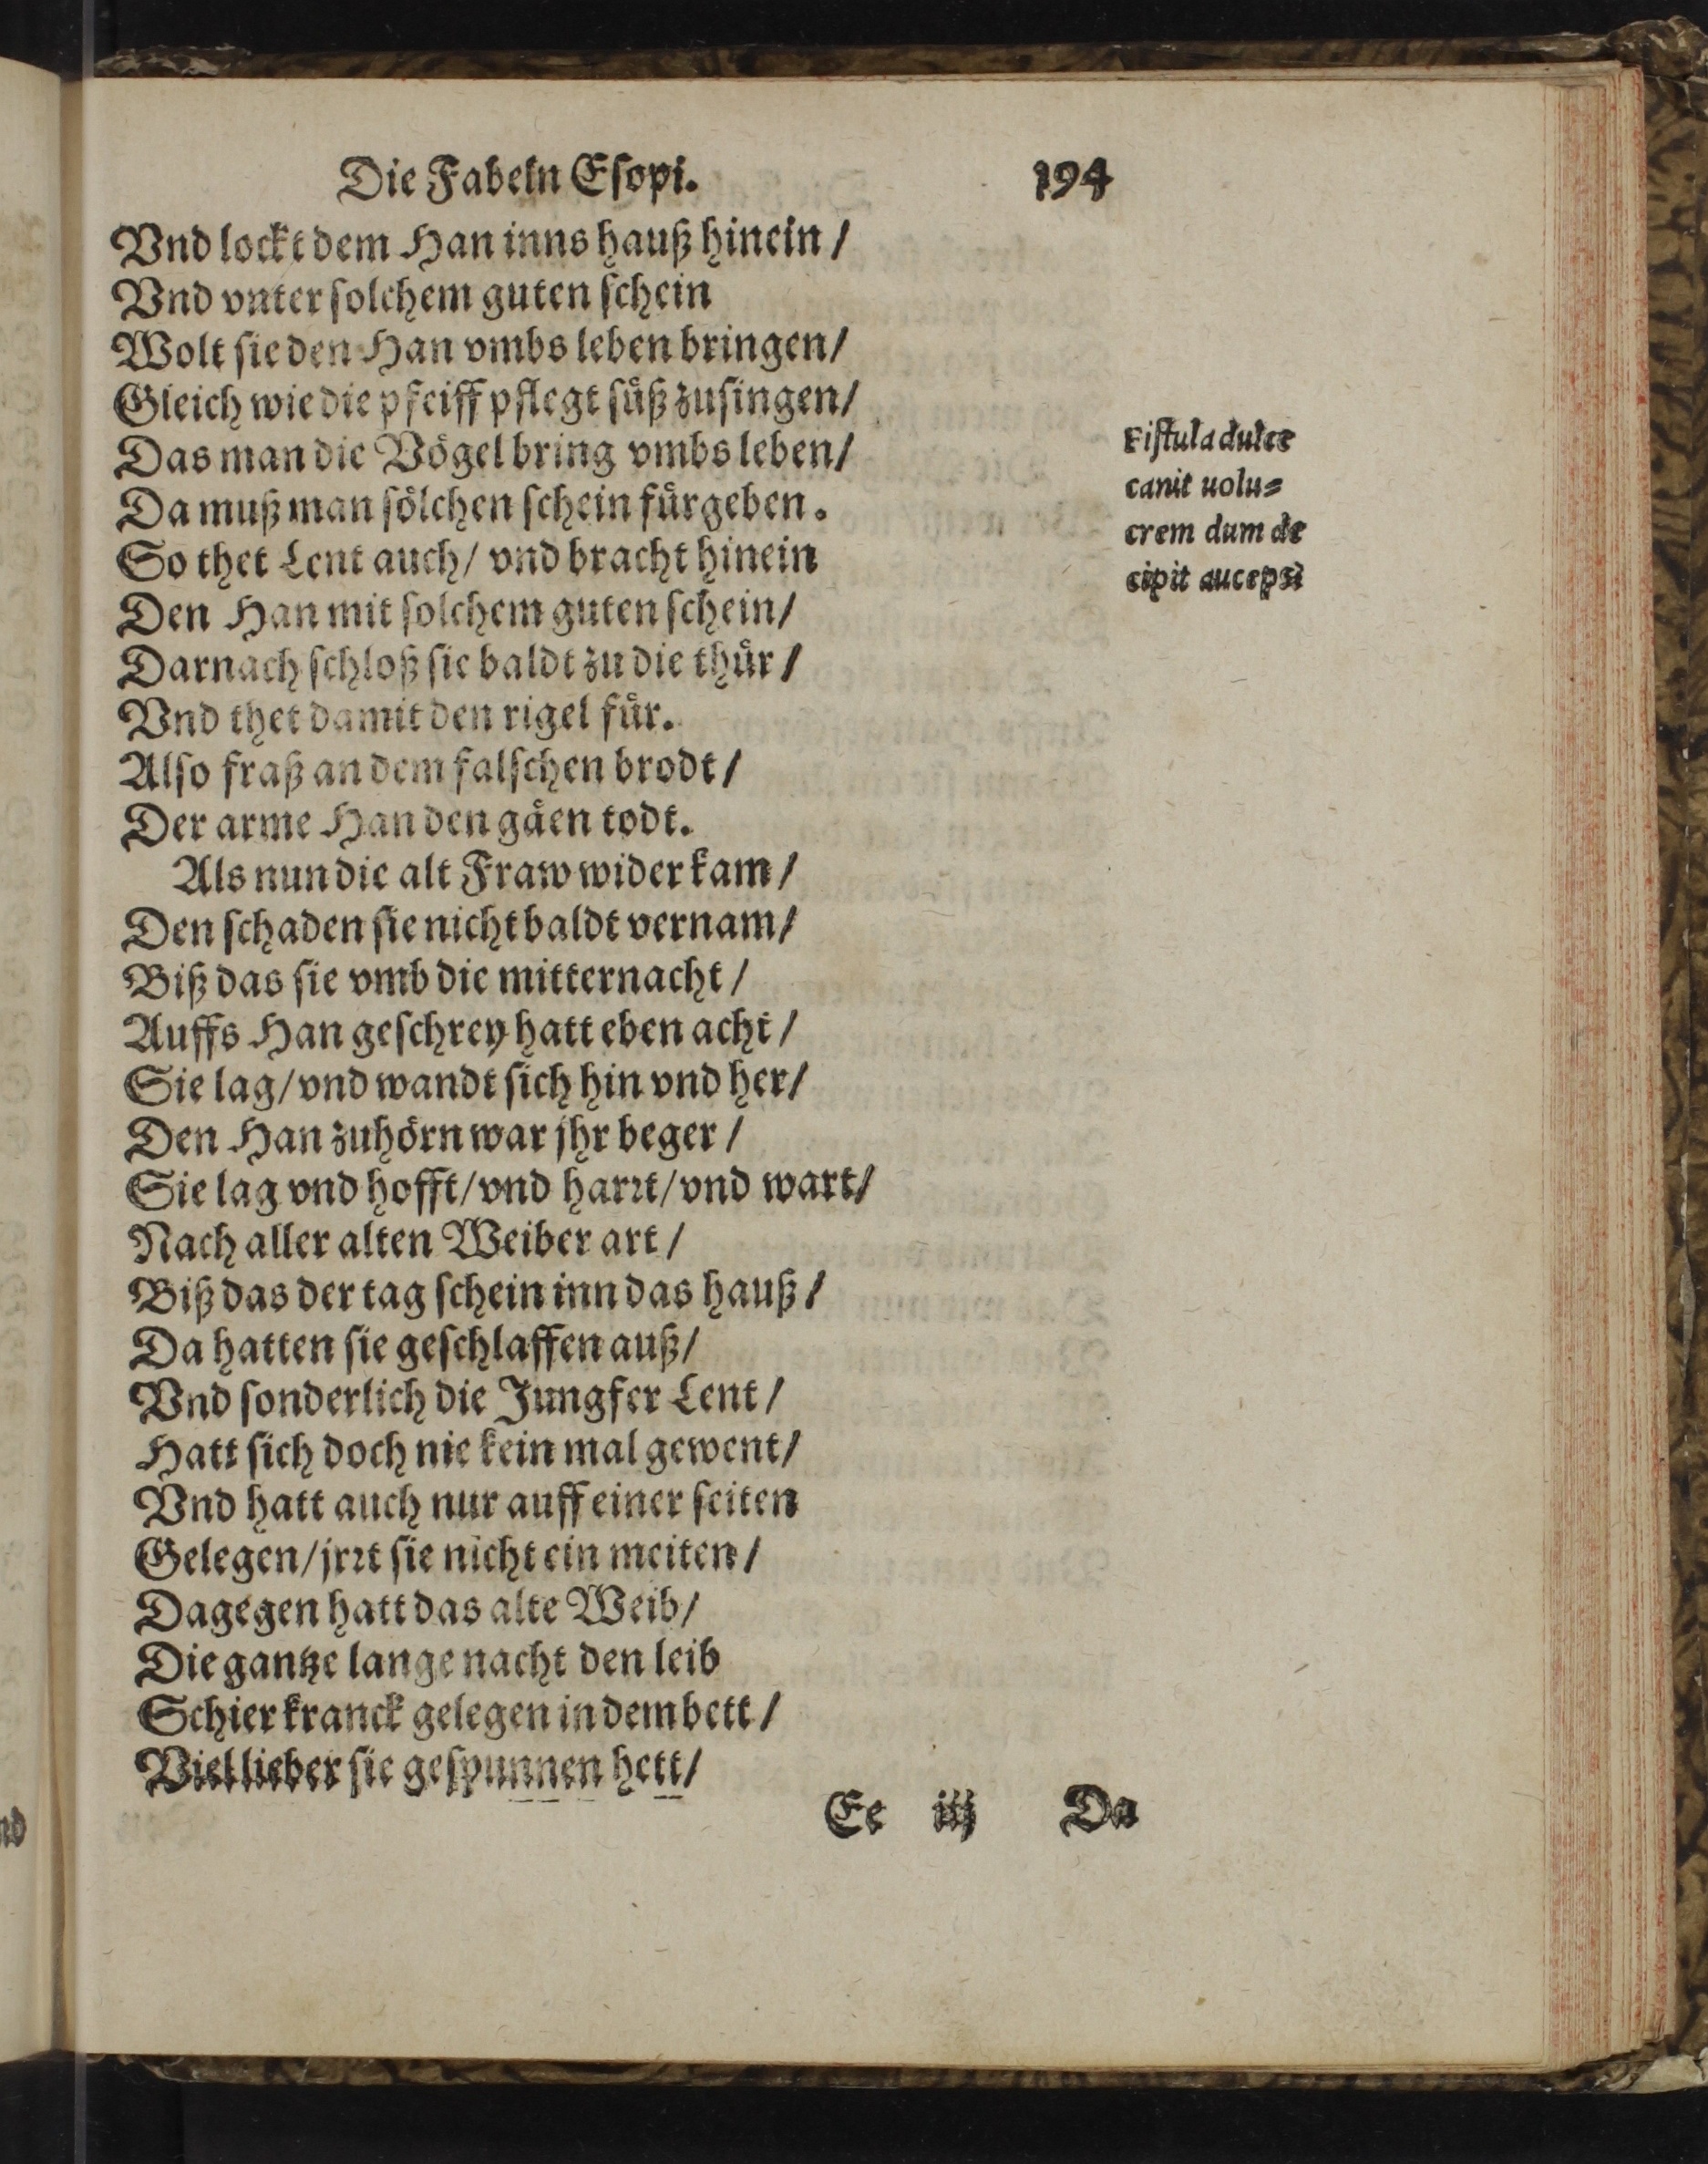 Die Fabeln Esopi. 194
Vnd lockt dem Han inns hauß hinein /
Vnd vnter solchem guten schein
Wolt sie den Han vmbs leben bringen /
Gleich wie die pfeiff pflegt süß zusingen /
Das man die Vögel bring vmbs leben /
Da muß man sölchen schein fürgeben.
So thet Lent auch / vnd bracht hinein
Den Han mit solchem guten schein /
Darnach schloß sie baldt zu die thür /
Vnd thet damit den rigel für.
Also fraß an dem falschen brodt /
Der arme Han den gäen todt.
Als nun die alt Fraw wider kam /
Den schaden sie nicht baldt vernam /
Biß das sie vmb die mitternacht /
Auffs Han geschrey hatt eben acht /
Sie lag / vnd wandt sich hin vnd her /
Den Han zuhörn war jhr beger /
Sie lag vnd hofft / vnd harrt / vnd wart /
Nach aller alten Weiber art /
Biß das der tag schein inn das hauß /
Da hatten sie geschlaffen auß /
Vnd sonderlich die Jungfer Lent /
Hatt sich doch nie kein mal gewent /
Vnd hatt auch nur auff einer seiten
Gelegen / jrrt sie nicht ein meiten /
Dagegen hatt das alte Weib /
Die gantze lange nacht den leib
Schier kranck gelegen in dem bett /
Viel lieber sie gespunnen hett /
Ee iij Da
Fistula dulce
canit uolu=
crem dum de
cipit auceps:
nd